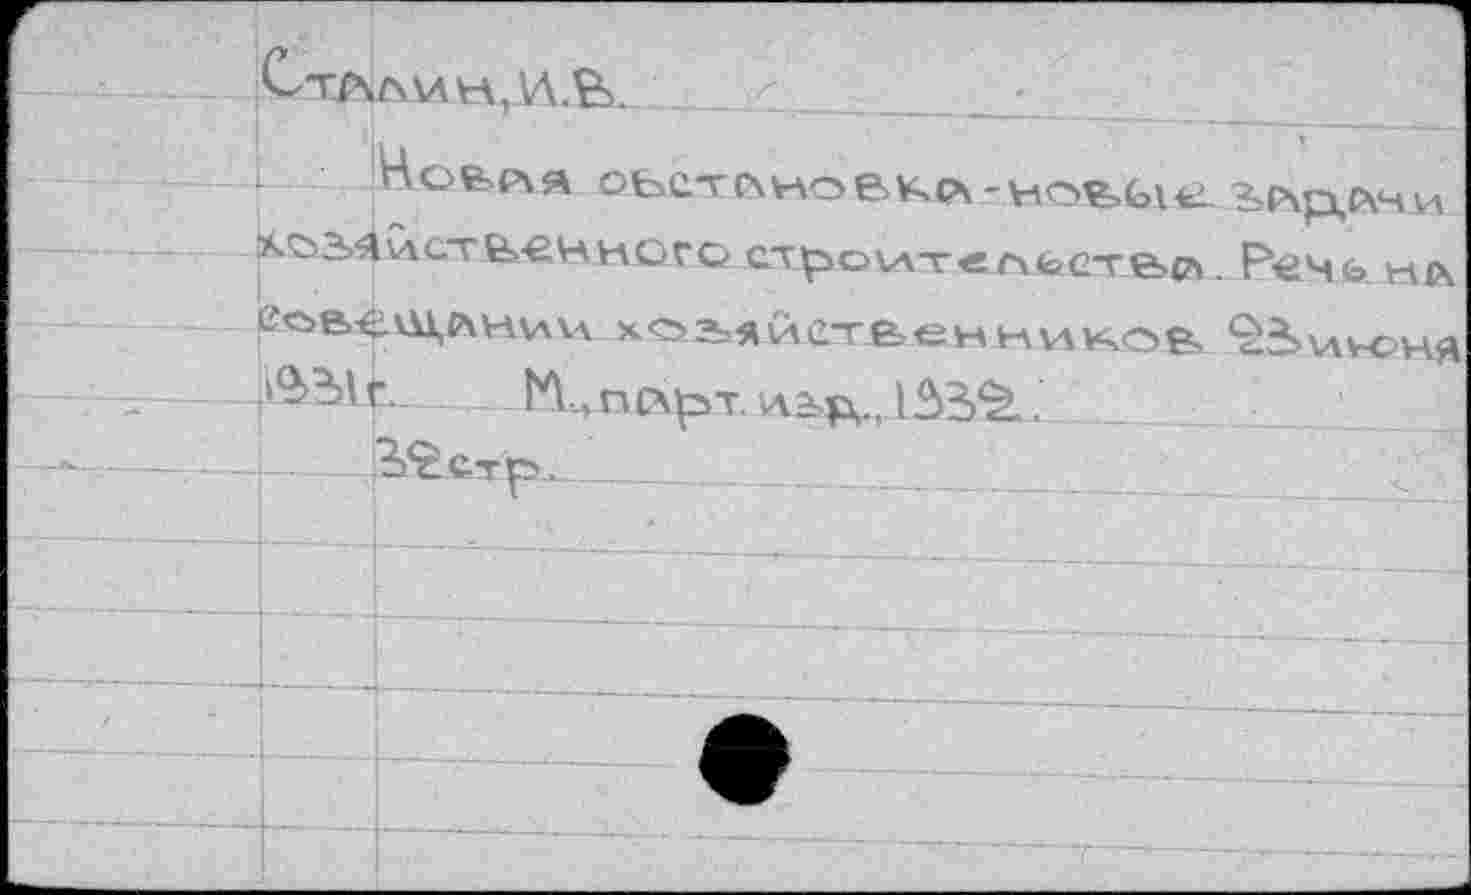 Сталин, И.В.
Новая обстановка - новые задачи
хозяйственного строительства. Речь на
совещании хозяйственников 23 июня
1931 г. М., парт. изд., 1932.
32 стр.